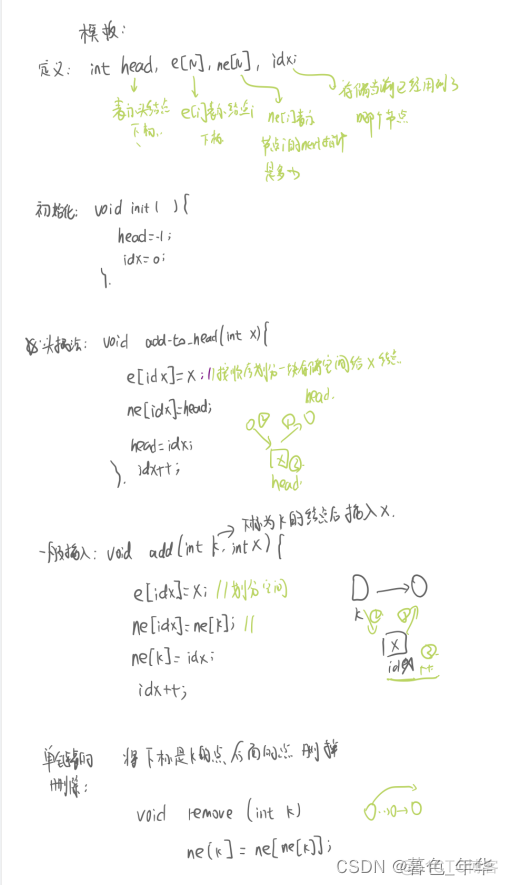 模板:
定义: int head, e[N], ne[N], idx;
表示头结点
下标
e[i]表示结点i
下标
ne[i]表示
节点i的next指针
是多少
存储当前已经用到了
哪个节点
初始化: void init( ){
head=-1;
idx=0;
}.
头插法: void add-to_head(int x){
e[idx]=x; //接收后划分一块存储空间给x结点
ne[idx]=head;
head=idx;
idx++;
}.
head.
x
head.
下标为k的结点后插入x.
一般插入: void add(int k, int x){
e[idx]=x; //划分空间
ne[idx]=ne[k]; //
ne[k]=idx;
idx++;
k
x
单链表的 将下标是k的点后面的点删掉
删除:
void remove (int k)
ne(k] = ne[ne[k]];
CSDN @暮色_年华